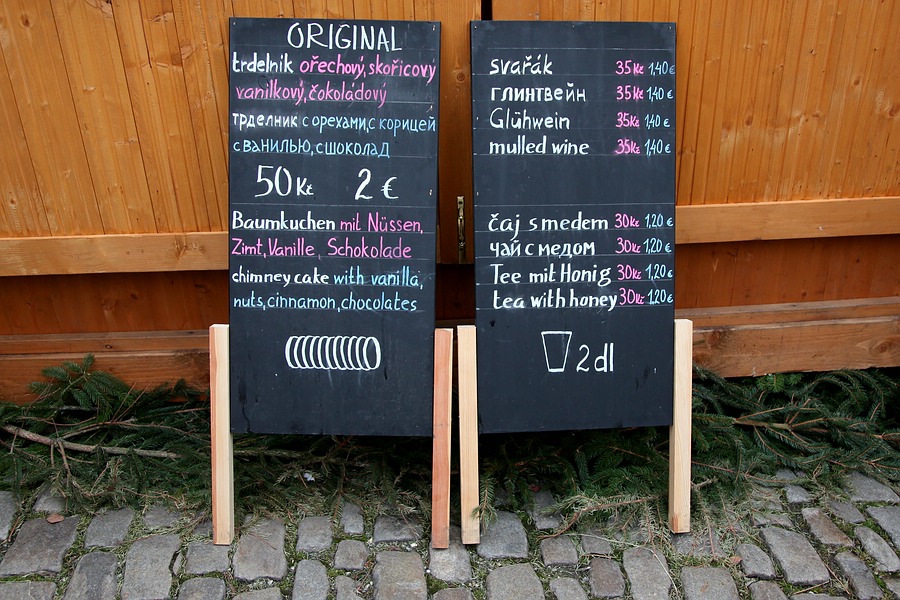 ORIGINAL
trdelnik ořechový, skořicový
vanilkový, čokoládový
трделник с орехами, с корицей
с ванилью, с шоколад
50 Kč 2 €
Baumkuchen mit Nüssen,
Zimt, Vanille, Schokolade
chimney cake with vanilla,
nuts, cinnamon, chocolates
svařák 35 Kč 1,40 €
глинтвейн 35 Kč 1,40 €
Glühwein 35 Kč 1,40 €
mulled wine 35 Kč 1,40 €
čaj s medem 30 Kč 1,20 €
чай с медом 30 Kč 1,20 €
Tee mit Honig 30 Kč 1,20 €
tea with honey 30 Kč 1,20 €
2 dl